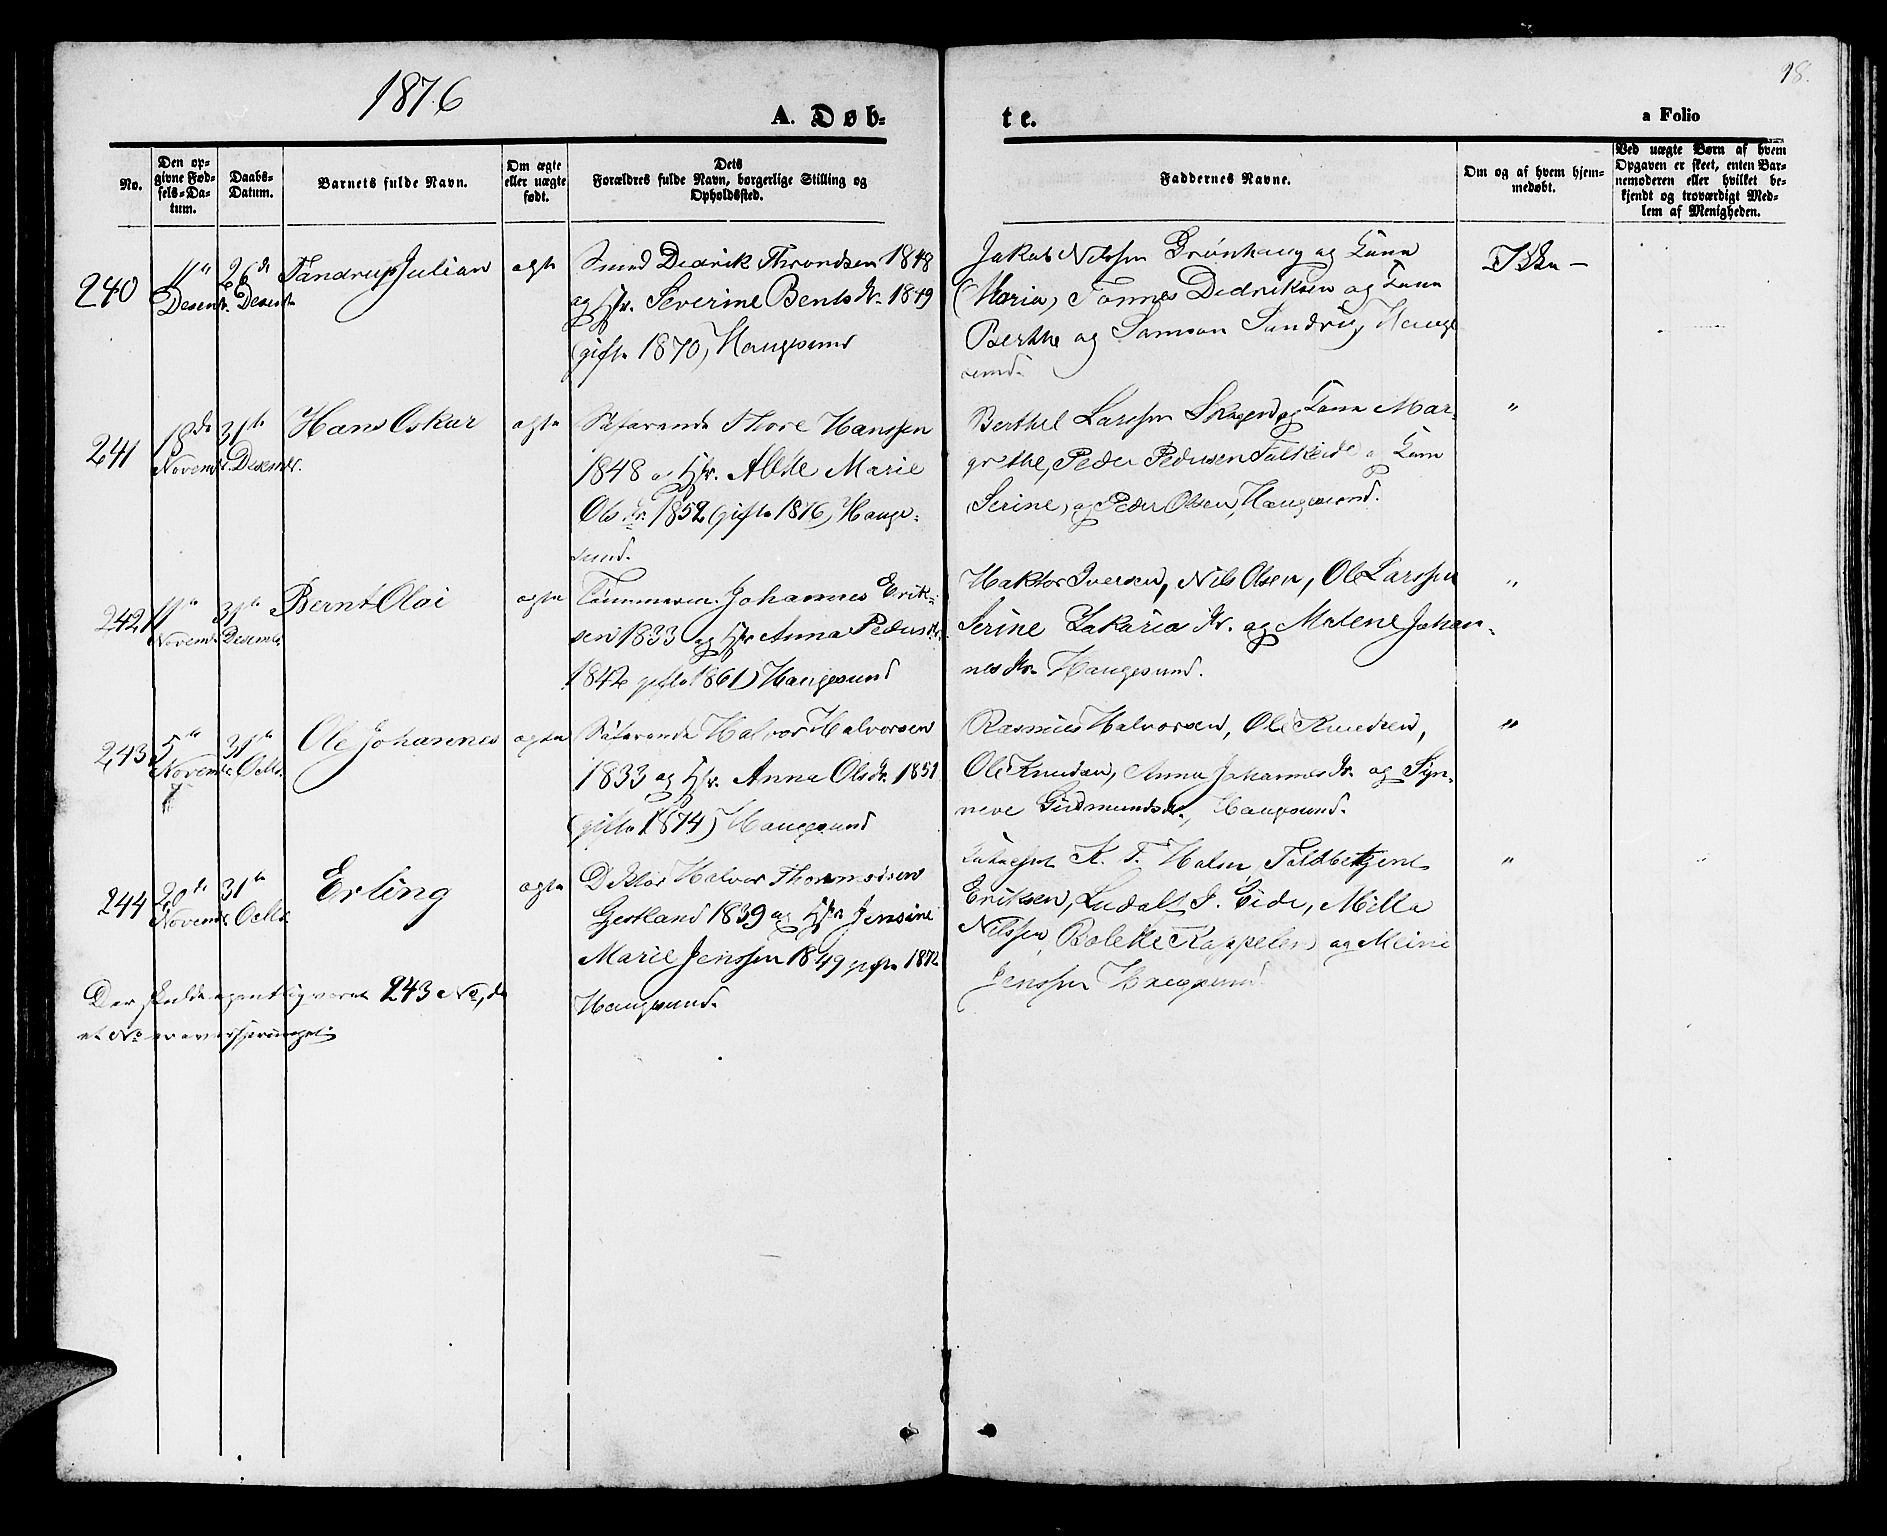 98.
1876
A. Døb-
te.
a Folio
No.
Den op-
givne Fød-
sels-Da-
tum.
Daabs-
Datum.
Barnets fulde Navn.
Om ægte
eller uægte
født.
Dets
Forældres fulde Navn, borgerlige Stilling og
Opholdssted.
Faddernes Navne.
Om og af hvem hjem-
medøbt.
Ved uægte Børn af hvem
Opgaven er skeet, enten Bar-
nemoderen eller hvilket be-
kjendt og troværdigt Med-
lem af Menigheden.
240
11te
Desembr.
26de
Desembr.
Tandrup Julian
ægte
Smed Dedrik Throndsen 1848
og Hstr. Severine Bentsdtr. 1849
(gifte 1870) Haugesund
Jakob Nilssen Grønhaug og Kone
Maria, Tønnes Dedriksen og Kone
Berthe og Samson Hauge
sund.
Ikke –
241
18de
Novembr.
31te
Desembr.
Hans Oskar
ægte
Søfarende Thore Hanssen
1848 og Hstr. Marie
Olsdtr. 1852 (gifte 1876) Hauge-
sund.
Berthel Larssen og Kone Mar-
grethe, Peder Pedersen og Kone
Serine, og Peder Olsen, Haugesund.
"
242
11te
Novembr.
31te
Desembr.
Bernt Olai
ægte
Tømmermand Johannes Erik-
sen 1833 og Hstr. Anna Pedersdtr.
1842 gifte 1861) Haugesund
Iversen, Nils Olsen, Ole Larssen
Serine Zakariasdtr. og Malene Johan-
nesdtr. Haugesund.
"
243
5te
Novembr.
31te
Octbr.
Ole Johannes
ægte
Søfarende Halvor Halvorsen
1833 og Hstr. Anna Olsdtr. 1851
(gifte 1874) Haugesund
Rasmus Halvorsen, Ole Knudsen,
Ole Knudsen, Anna Johannesdtr. og Syn-
neve Gudmundsdtr., Haugesund.
"
244
20de
Novembr.
31te
Octbr.
Erling
ægte
Doktor Halvor Thormodsen
Gjestland 1839 og Hstr. Jensine
Marie Jenssen 1849 gifte 1872
Haugesund.
K. T. Holm, Toldbetjent
Eriksen, J. Eide, Milla
Nilssen, Bolette Kappelen og Meine
Jenssen Haugesund
"
Der skulde egentlig været 243 No, da
et No er oversprunget.